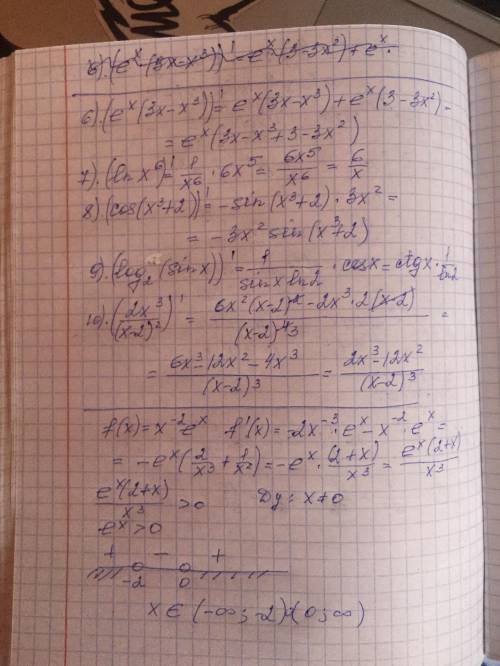 6).(e^x(3x-x^3))' = e^x(3-3x^2)+e^x.
6).(e^x(3x-x^3))'= e^x(3x-x^3)+e^x(3-3x^2)=
=e^x(3x-x^3+3-3x^2)
7).(ln x^6)'= 1/x^6 · 6x^5 = 6x^5/x^6 = 6/x
8).(cos(x^3+2))'= -sin(x^3+2)·3x^2=
= -3x^2 sin(x^3+2)
9).(log_2(sinx))'= 1/(sinx ln2) · cosx = ctgx · 1/ln2
10).(2x^3/(x-2)^2)' = (6x^2(x-2)^2-2x^3·2(x-2))/(x-2)^4 3 =
= (6x^3-12x^2-4x^3)/(x-2)^3 = (2x^3-12x^2)/(x-2)^3
f(x)=x^-2 e^x f'(x)= -2x^-3·e^x-x^-2·e^x=
= -e^x(2/x^3 + 1/x^2)= -e^x·(2+x)/x^3 = e^x(2+x)/x^3
e^x(2+x)/x^3 >0 Dy: x≠0
e^x>0
+ - +
-2 0
x∈(-∞;-2)(0;∞)